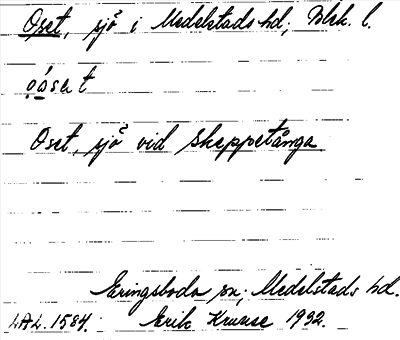 Oset, sjö i Medelstads hd; Blek. l.
o̤ósat
Oset, sjö vid Skeppetånga
Eringsboda sn; Medelstads hd.
L.A.L. 1584. Erik Kruuse 1932.